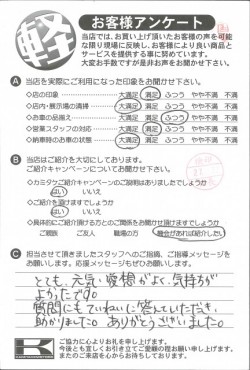 軽
お客様アンケート
当店では、お買い上げ頂いたお客様の声を可能
な限り現場に反映し、お客様により良い商品と
サービスを提供する事に努めています。
大変お手数ですが是非お声をお聞かせ下さい。
A 当店を実際にご利用になった印象をお聞かせ下さい。
◇店の印象 大満足 満足 ふつう やや不満 不満
◇店内・展示場の清掃 大満足 満足 ふつう やや不満 不満
◇お車の品揃え 大満足 満足 ふつう やや不満 不満
◇営業スタッフの対応 大満足 満足 ふつう やや不満 不満
◇納車時のお車の状態 大満足 満足 ふつう やや不満 不満
B 当店はご紹介を大切にしております。
ご紹介キャンペーンについてお聞かせ下さい。
◇カミタケご紹介キャンペーンのご説明はありましたでしょうか
はい いいえ
◇ご紹介を頂けますでしょうか
はい いいえ
◇具体的にご紹介頂ける方とのご関係をお聞かせ頂けますでしょうか
ご親族 ご友人 職場の方 機会があれば紹介したい
C 担当させて頂きましたスタッフへのご指摘、ご指導メッセージを
お願いします。応援メッセージもぜひお願いします。
とても、元気、愛想がよく、気持ちが
よかったです。
質問にもていねいに答えていただき、
助かりました。ありがとうございました。
K
ご協力に心よりお礼を申し上げます。
今後とも宜しくお引き立てご愛顧の程お願い申し上げます。
またのご来店を心からお待ちしております。